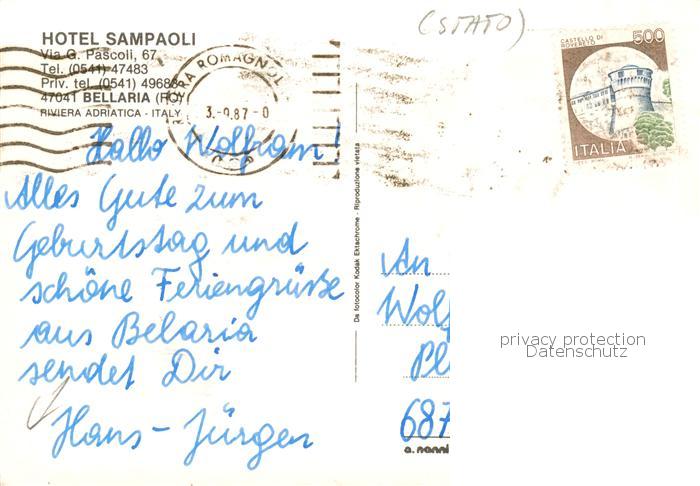 HOTEL SAMPAOLI
Via G. Pascoli, 67
Tel. (0541) 47483
Priv. tel. (0541) 49683
47041 BELLARIA (FO)
RIVIERA ADRIATICA - ITALY
ROMAGNOL
3.-9.87-0
(STATO)
CASTELLO DI
ROVERETO
500
ITALIA
Hallo Wolfram!
Alles Gute zum
Geburtstag und
schöne Feriengrüsse
aus Belaria
sendet Dir
Hans-Jürgen
Da fotocolor Kodak Ektachrome - Riproduzione vietata
An
Wolf
Pl
687
a. nanni
privacy protection
Datenschutz